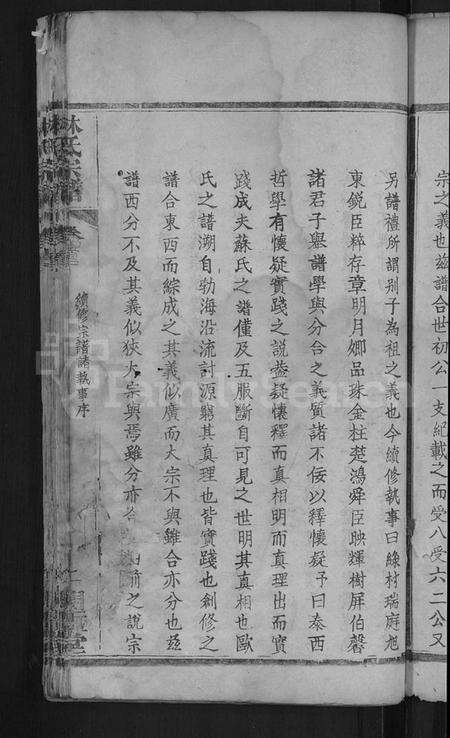 宗之義也兹譜合世初公一支紀載之而受八受六二公又
另譜禮所謂别子為祖之義也今續修執事曰綠村瑞庭旭
東銳臣粹存章明月卿品珠金柱楚鴻舜臣映輝樹屏伯馨
諸君子舉譜學與分合之義質諸不佞以釋懷疑予曰泰西
哲學有懷疑實踐之說葢疑懷釋而真相明而真理出而實
踐成夫蘇氏之譜僅及五服斷自可見之世明其真相也歐
氏之譜溯自勃海沿流討源窮其真理也皆實踐也創修之
譜合東西而綜成之其義似廣而大宗不與雖合亦分也兹
譜西分不及其義似狹大宗與焉雖分亦合 之說宗
林氏宗譜
續修宗譜諸執事序
二